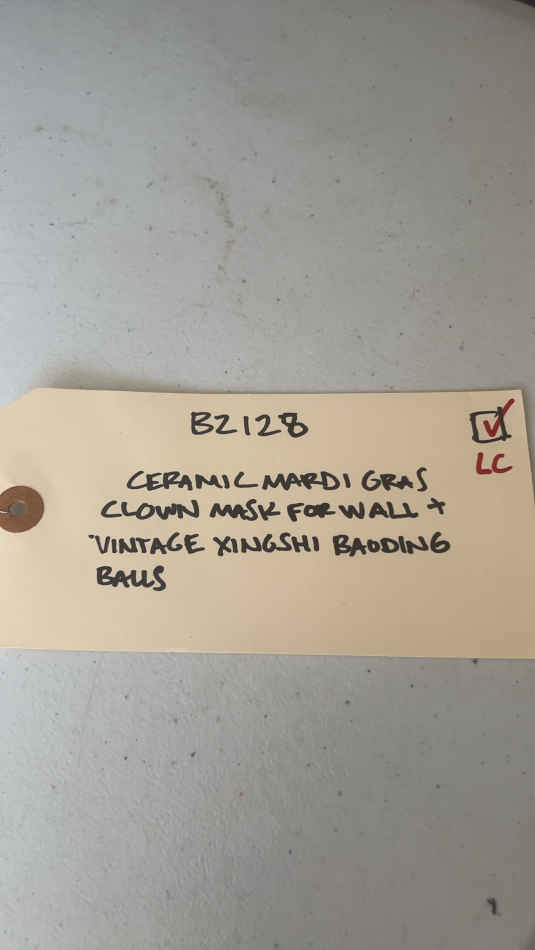 BZ128
LC
CERAMIC MARDI GRAS
CLOWN MASK FOR WALL +
VINTAGE XINGSHI BAODING
BALLS